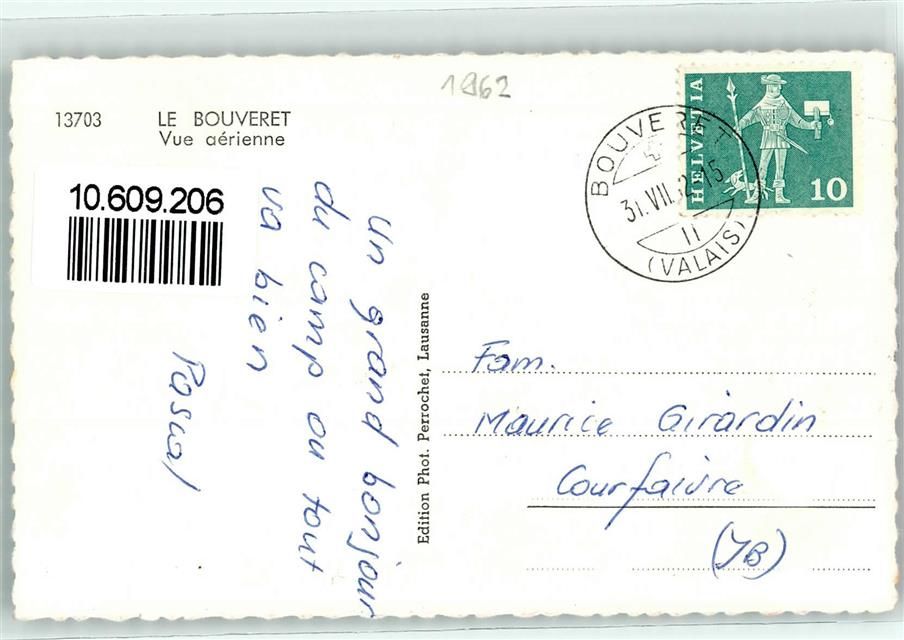 1962
13703 LE BOUVERET
Vue aérienne
10.609.206
un grand bonjour
du camp ou tout
va bien
Pascal
Edition Phot. Perrochet, Lausanne
HELVETIA
10
BOUVERET
31.VII.62-15
(VALAIS)
Fam.
Maurice Girardin
Courfaivre
(JB)